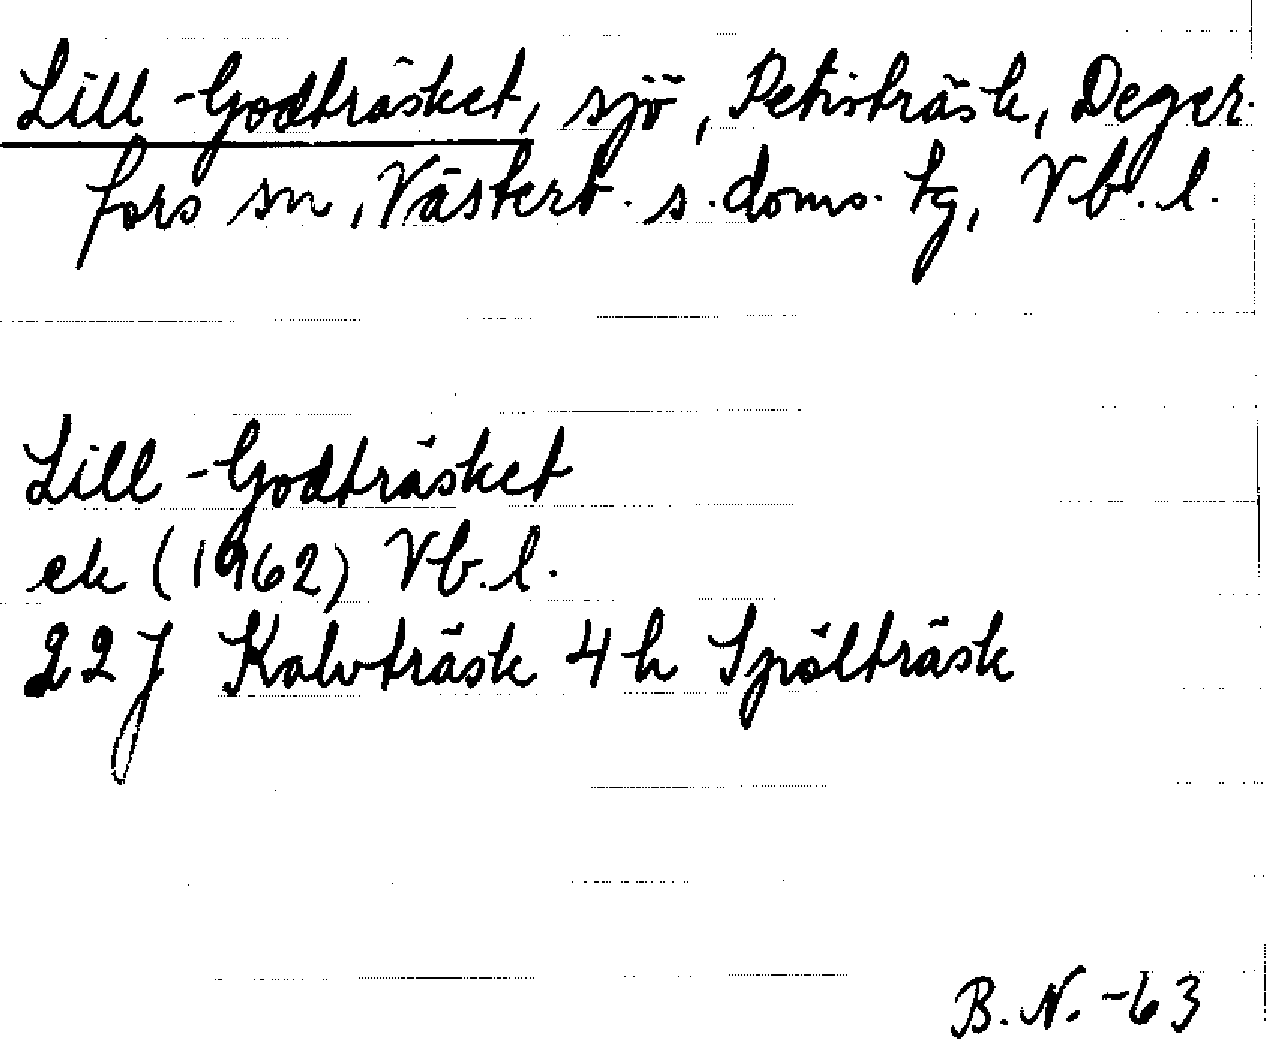 Lill-Godträsket, sjö, Petisträsk, Deger-
fors sn, Västerb. s. doms. tg, Vb. l.
Lill-Godträsket
ek (1962) Vb. l.
22J Kalvträsk 4h Spölträsk
B.N. -63